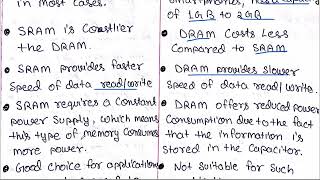 in most cases.
• SRAM is Constlier
the DRAM.
• SRAM provides faster
speed of data read/write
• SRAM requires a Constant
power Supply, which means
this type of memory Consumes
more power.
• Good choice for applications
of 1GB to 2GB
• DRAM Costs Less
Compared to SRAM
• DRAM provides slower
Speed of data read/write.
• DRAM offers reduced power
Consumption due to the fact
that the information is
stored in the Capacitor.
• Not suitable for Such